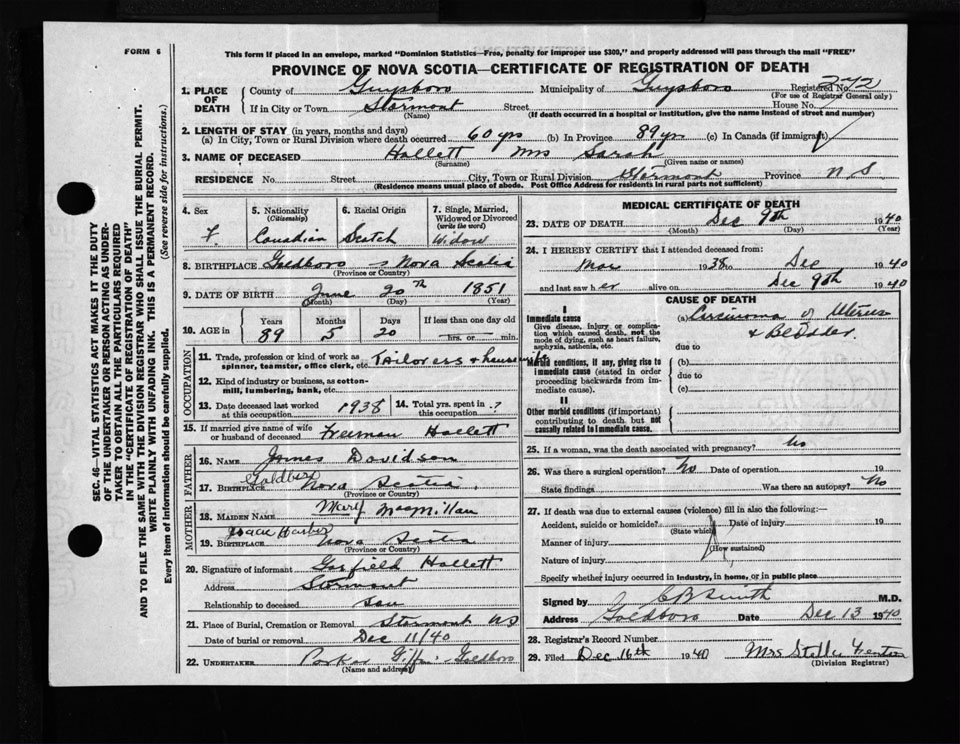 FORM 6
This form if placed in an envelope, marked "Dominion Statistics—Free, penalty for improper use $300," and properly addressed will pass through the mail "FREE"
PROVINCE OF NOVA SCOTIA—CERTIFICATE OF REGISTRATION OF DEATH
SEC. 46—VITAL STATISTICS ACT MAKES IT THE DUTY
OF THE UNDERTAKER OR PERSON ACTING AS UNDER-
TAKER TO OBTAIN ALL THE PARTICULARS REQUIRED
IN THE "CERTIFICATE OF REGISTRATION OF DEATH"
AND TO FILE THE SAME WITH THE DIVISION REGISTRAR WHO SHALL ISSUE THE BURIAL PERMIT.
WRITE PLAINLY WITH UNFADING INK. THIS IS A PERMANENT RECORD.
Every item of information should be carefully supplied. (See reverse side for instructions.)
1. PLACE OF DEATH
County of Guysboro Municipality of Guysboro Registered No. 372
(For use of Registrar General only)
If in City or Town Stormont Street House No.
(Name) (If death occurred in a hospital or institution, give the name instead of street and number)
2. LENGTH OF STAY (in years, months and days)
(a) In City, Town or Rural Division where death occurred 60 yrs (b) In Province 89 yr (c) In Canada (if immigrant)
3. NAME OF DECEASED Hallett Mrs Sarah
(Surname) (Given name or names)
RESIDENCE No. Street City, Town or Rural Division Stormont Province N S
(Residence means usual place of abode. Post Office Address for residents in rural parts not sufficient)
4. Sex F.
5. Nationality (Citizenship) Canadian
6. Racial Origin Scotch
7. Single, Married, Widowed or Divorced (write the word) Widow
8. BIRTHPLACE Goldboro Nova Scotia
(Province or Country)
9. DATE OF BIRTH June 20th 1851
(Month) (Day) (Year)
10. AGE in Years 89 Months 5 Days 20 If less than one day
hrs. or min.
OCCUPATION
11. Trade, profession or kind of work as spinner, teamster, office clerk, etc. Tailoress & housewife
12. Kind of industry or business, as cotton-mill, lumbering, bank, etc.
13. Date deceased last worked at this occupation 1938
14. Total yrs. spent in this occupation ?
15. If married give name of wife or husband of deceased Freeman Hallett
FATHER
16. NAME James Davidson
17. BIRTHPLACE Goldboro Nova Scotia
(Province or Country)
MOTHER
18. MAIDEN NAME Mary MacMillan
19. BIRTHPLACE Isaac Harbor Nova Scotia
(Province or Country)
20. Signature of informant Garfield Hallett
Address Stormont
Relationship to deceased son
21. Place of Burial, Cremation or Removal Stormont NS
Date of burial or removal Dec 11/40
22. UNDERTAKER Parker Giffin Goldboro
(Name and address)
MEDICAL CERTIFICATE OF DEATH
23. DATE OF DEATH Dec 9th 1940
(Month) (Day) (Year)
24. I HEREBY CERTIFY that I attended deceased from:
1938 to Dec 1940
and last saw her alive on Dec 9th 1940
CAUSE OF DEATH
I
Immediate cause (a) Carcinoma of Uterus
& Bladder
Give disease, injury or complication which caused death, not the mode of dying, such as heart failure, asphyxia, asthenia, etc.
due to
Morbid conditions, if any, giving rise to immediate cause (stated in order proceeding backwards from immediate cause).
(b)
due to
(c)
II
Other morbid conditions (if important) contributing to death but not causally related to immediate cause.
25. If a woman, was the death associated with pregnancy? No
26. Was there a surgical operation? No Date of operation 19
State findings Was there an autopsy? No
27. If death was due to external causes (violence) fill in also the following:—
Accident, suicide or homicide? Date of injury 19
(State which)
Manner of injury
(How sustained)
Nature of injury
Specify whether injury occurred in industry, in home, or in public place
Signed by C B Smith M.D.
Address Goldboro Date Dec 13 1940
28. Registrar's Record Number
29. Filed Dec 16th 1940 Mrs Stella Fenton
(Division Registrar)